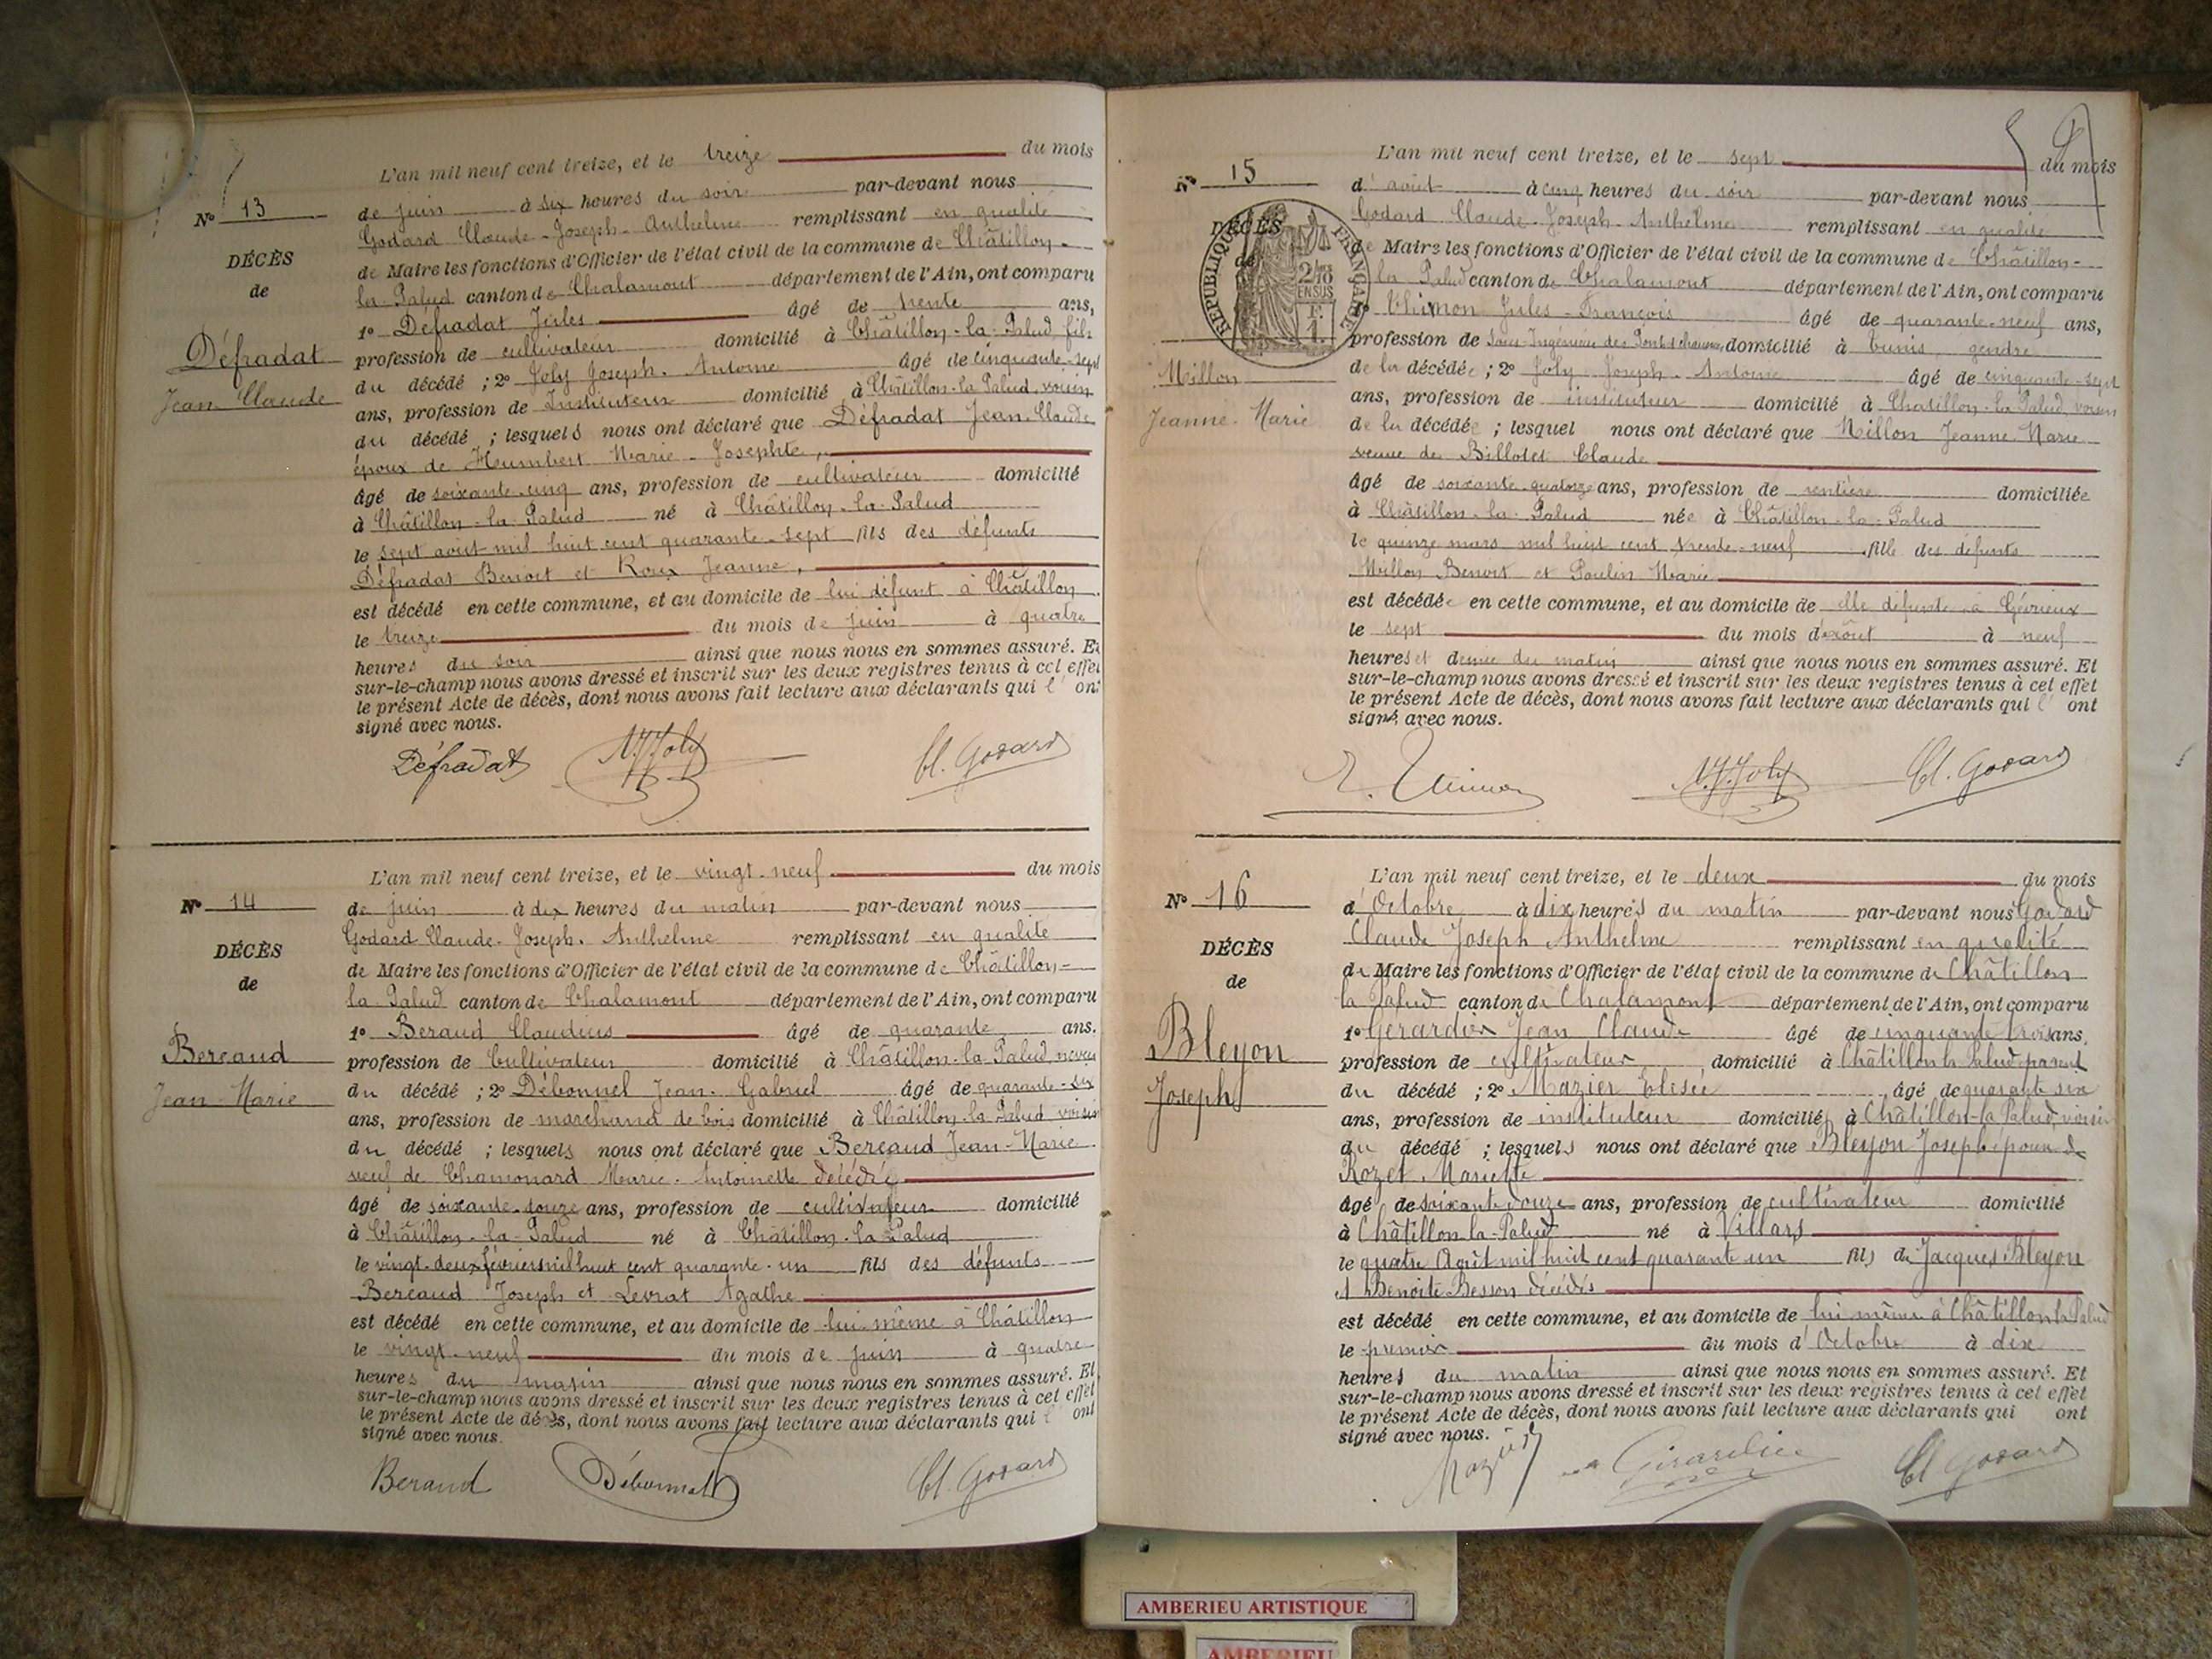 L'an mil neuf cent treize, et le treize du mois
N° 13
de juin à six heures du soir par-devant nous
Godard Claude-Joseph-Anthelme remplissant en qualité
DÉCÈS
de Maire les fonctions d'Officier de l'état civil de la commune de Châtillon-
de
la-Palud canton de Chalamont département de l'Ain, ont comparu
1° Défradat Jules âgé de trente ans,
Défradat
profession de cultivateur domicilié à Châtillon-la-Palud, fils
du décédé ; 2° Joly Joseph-Antoine âgé de cinquante-sept
Jean-Claude
ans, profession de Instituteur domicilié à Châtillon-la-Palud, voisin
du décédé ; lesquels nous ont déclaré que Défradat Jean-Claude
époux de Humbert Marie-Josephte,
âgé de soixante-cinq ans, profession de cultivateur domicilié
à Châtillon-la-Palud né à Châtillon-la-Palud
le sept août mil huit cent quarante-sept fils des défunts
Défradat Benoit et Roux Jeanne,
est décédé en cette commune, et au domicile de lui défunt à Châtillon
le treize du mois de juin à quatre
heures du soir ainsi que nous nous en sommes assuré. Et
sur-le-champ nous avons dressé et inscrit sur les deux registres tenus à cet effet
le présent Acte de décès, dont nous avons fait lecture aux déclarants qui l' ont
signé avec nous.
Défradat Joly Cl. Godard
L'an mil neuf cent treize, et le vingt-neuf du mois
N° 14
de juin à dix heures du matin par-devant nous
Godard Claude-Joseph-Anthelme remplissant en qualité
DÉCÈS
de Maire les fonctions d'Officier de l'état civil de la commune de Châtillon-
de
la-Palud canton de Chalamont département de l'Ain, ont comparu
1° Beraud Claudius âgé de quarante ans.
Beraud
profession de Cultivateur domicilié à Châtillon-la-Palud, neveu
Jean-Marie
du décédé ; 2° Débonnel Jean-Gabriel âgé de quarante-six
ans, profession de marchand de bois domicilié à Châtillon-la-Palud voisin
du décédé ; lesquels nous ont déclaré que Beraud Jean-Marie
veuf de Chamonard Marie-Antoinette décédée
âgé de soixante-douze ans, profession de cultivateur domicilié
à Châtillon-la-Palud né à Châtillon-la-Palud
le vingt-deux février mil huit cent quarante-un fils des défunts
Beraud Joseph et Levrat Agathe
est décédé en cette commune, et au domicile de lui-même à Châtillon
le vingt-neuf du mois de juin à quatre
heures du matin ainsi que nous nous en sommes assuré. Et
sur-le-champ nous avons dressé et inscrit sur les deux registres tenus à cet effet
le présent Acte de décès, dont nous avons fait lecture aux déclarants qui l' ont
signé avec nous.
Beraud Débonnel Cl. Godard
L'an mil neuf cent treize, et le sept du mois
N° 15
d'août à cinq heures du soir par-devant nous
Godard Claude-Joseph-Anthelme remplissant en qualité
DÉCÈS
de Maire les fonctions d'Officier de l'état civil de la commune de Châtillon-
de
RÉPUBLIQUE FRANÇAISE
2/10 EN SUS
la Palud canton de Chalamont département de l'Ain, ont comparu
1° Thimon Jules-François âgé de quarante-neuf ans,
profession de Sous-Ingénieur des Ponts et chaussées, domicilié à Tunis, gendre
Millon
de la décédée ; 2° Joly Joseph-Antoine âgé de cinquante-sept
ans, profession de instituteur domicilié à Châtillon-la-Palud, voisin
Jeanne-Marie
de la décédée ; lesquel nous ont déclaré que Millon Jeanne-Marie
veuve de Billotet Claude
âgé de soixante-quatorze ans, profession de rentière domiciliée
à Châtillon-la-Palud née à Châtillon-la-Palud
le quinze mars mil huit cent trente-neuf fille des défunts
Millon Benoit et Poulin Marie
est décédée en cette commune, et au domicile de elle défunte à Gévrieux
le sept du mois d'août à neuf
heures et demie du matin ainsi que nous nous en sommes assuré. Et
sur-le-champ nous avons dressé et inscrit sur les deux registres tenus à cet effet
le présent Acte de décès, dont nous avons fait lecture aux déclarants qui l' ont
signé avec nous.
Joly Cl. Godard
L'an mil neuf cent treize, et le deux du mois
N° 16
d'Octobre à dix heures du matin par-devant nous Godard
Claude Joseph Anthelme remplissant en qualité
DÉCÈS
de Maire les fonctions d'Officier de l'état civil de la commune de Châtillon
de
la Palud canton de Chalamont département de l'Ain, ont comparu
1° Gerardier Jean Claude âgé de cinquante trois ans,
Bleyon
profession de cultivateur domicilié à Châtillon la Palud parent
Joseph
du décédé ; 2° Mazier Elisée âgé de quarante six
ans, profession de instituteur domicilié à Châtillon-la Palud, voisin
du décédé ; lesquels nous ont déclaré que Bleyon Joseph époux de
Rozet Mariette
âgé de soixante douze ans, profession de cultivateur domicilié
à Châtillon-la-Palud né à Villars
le quatre Août mil huit cent quarante un fils de Jacques Bleyon
et Benoite Besson décédés
est décédé en cette commune, et au domicile de lui même à Châtillon la Palud
le premier du mois d'Octobre à dix
heures du matin ainsi que nous nous en sommes assuré. Et
sur-le-champ nous avons dressé et inscrit sur les deux registres tenus à cet effet
le présent Acte de décès, dont nous avons fait lecture aux déclarants qui ont
signé avec nous.
Mazier Girardier Cl. Godard
AMBERIEU ARTISTIQUE
AMBERIEU